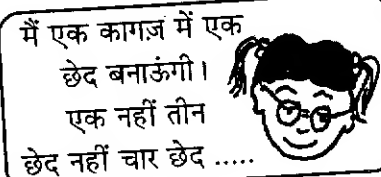 मैं एक कागज़ में एक
छेद बनाऊंगी।
एक नहीं तीन
छेद नहीं चार छेद .....